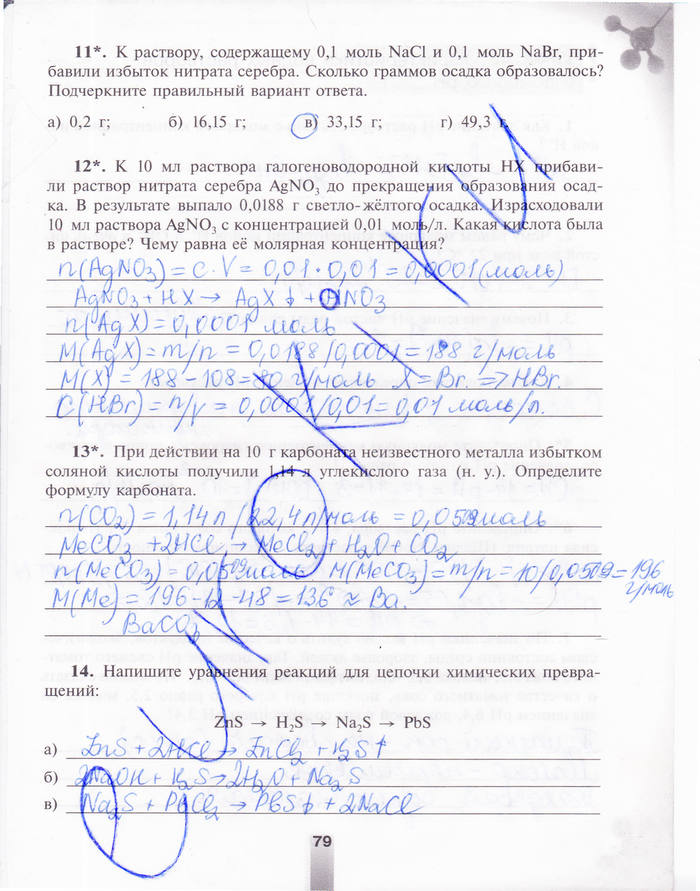 11*. К раствору, содержащему 0,1 моль NaCl и 0,1 моль NaBr, при-
бавили избыток нитрата серебра. Сколько граммов осадка образовалось?
Подчеркните правильный вариант ответа.
а) 0,2 г; б) 16,15 г; в) 33,15 г; г) 49,3 г.
12*. К 10 мл раствора галогеноводородной кислоты HX прибави-
ли раствор нитрата серебра AgNO₃ до прекращения образования осад-
ка. В результате выпало 0,0188 г светло-жёлтого осадка. Израсходовали
10 мл раствора AgNO₃ с концентрацией 0,01 моль/л. Какая кислота была
в растворе? Чему равна её молярная концентрация?
n(AgNO₃) = C·V = 0,01·0,01 = 0,0001 (моль)
AgNO₃ + HX → AgX↓ + HNO₃
n(AgX) = 0,0001 моль
M(AgX) = m/n = 0,0188/0,0001 = 188 г/моль
M(X) = 188 – 108 = 80 г/моль X = Br. => HBr.
C(HBr) = n/V = 0,0001/0,01 = 0,01 моль/л.
13*. При действии на 10 г карбоната неизвестного металла избытком
соляной кислоты получили 1,14 л углекислого газа (н. у.). Определите
формулу карбоната.
n(CO₂) = 1,14 л / 22,4 л/моль = 0,0509 моль
MeCO₃ + 2HCl → MeCl₂ + H₂O + CO₂
n(MeCO₃) = 0,0509 моль M(MeCO₃) = m/n = 10/0,0509 = 196 г/моль
M(Me) = 196 – 12 – 48 = 136 ≈ Ba.
BaCO₃
14. Напишите уравнения реакций для цепочки химических превра-
щений:
ZnS → H₂S → Na₂S → PbS
а) ZnS + 2HCl → ZnCl₂ + H₂S↑
б) 2NaOH + H₂S → 2H₂O + Na₂S
в) Na₂S + PbCl₂ → PbS↓ + 2NaCl
79